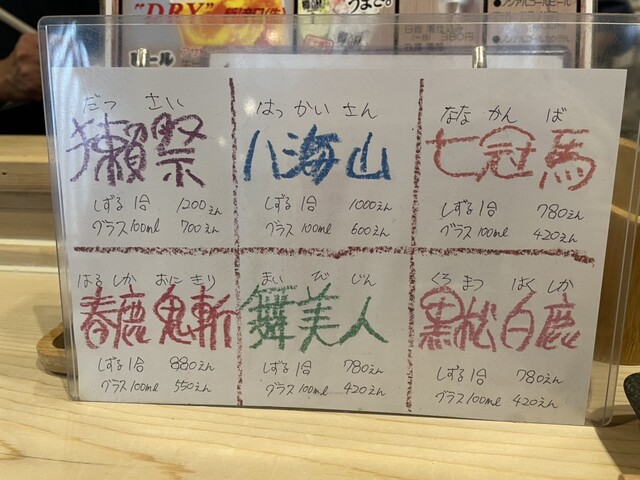 "DRY"
だっ さい
獺祭
しずる 1合 1200えん
グラス100ml 700えん
はっ かい さん
八海山
しずる 1合 1000えん
グラス100ml 600えん
なな かん ば
七冠馬
しずる 1合 780えん
グラス100ml 420えん
はる しか おに きり
春鹿鬼斬
しずる 1合 880えん
グラス100ml 550えん
まい び じん
舞美人
しずる 1合 780えん
グラス100ml 420えん
くろ まつ はく しか
黒松白鹿
しずる 1合 780えん
グラス100ml 420えん